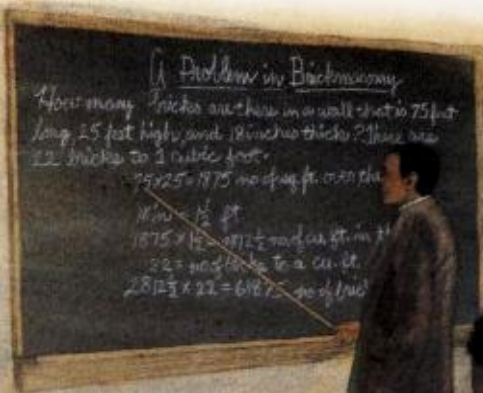 A Problem in Brickmasonry
How many bricks are there in a wall that is 75 feet
long, 25 feet high, and 18 inches thick? There are
22 bricks to 1 cubic foot.
75x25=1875 no of sq. ft. over the
18 in = 1½ ft
1875 x 1½ = 2812½ no of cu. ft. in th
22 = no of bricks to a cu. ft.
2812½ x 22 = 61875 no of bric